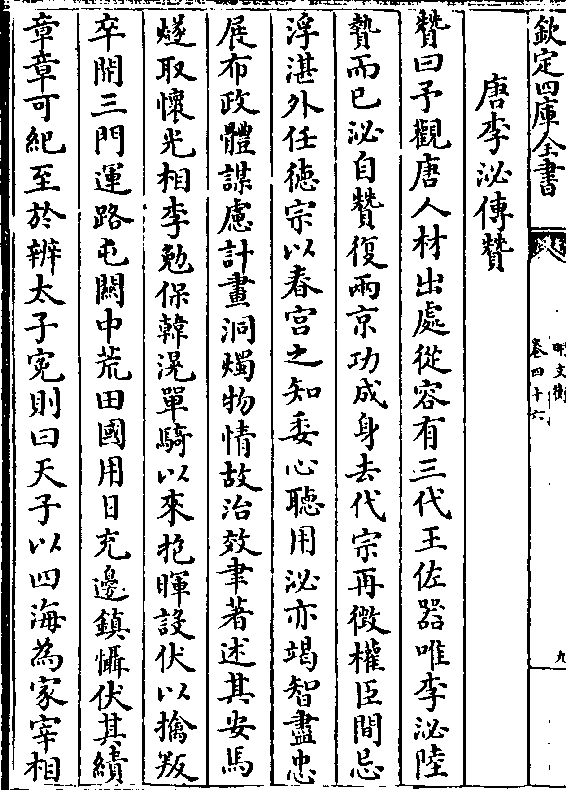 欽定四庫全書
明文衡
卷四十六
九
唐李泌傳贊
贊曰予觀唐人材出處從容有三代王佐器唯李泌陸
贄而已泌自贊復兩京功成身去代宗再徴權臣間忌
浮湛外任徳宗以春宫之知委心聽用泌亦竭智盡忠
展布政體謀慮計畫洞燭物情故治效聿著述其安馬
燧取懷光相李勉保韓滉單騎以来抱暉設伏以擒叛
卒開三門運路屯闗中荒田國用日充邊鎮懾伏其績
章章可紀至於辨太子寃則曰天子以四海為家宰相